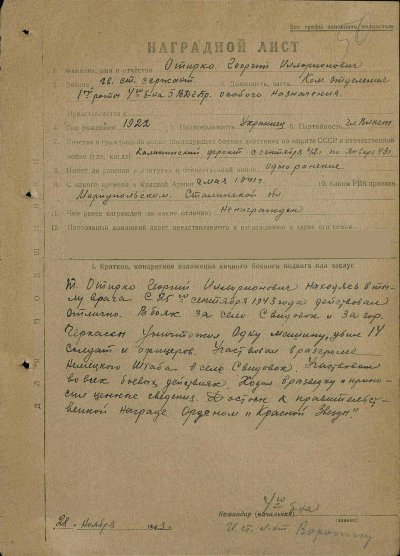 Все графы заполнять полностью
НАГРАДНОЙ ЛИСТ
1. Фамилия, имя и отчество Отирко Георгий Илларионович
2. Звание гв. ст. сержант 3. Должность, часть Ком. отделения
1 роты 4 б-на 5 ВДБр. особого назначения.
Представляется к
4. Год рождения 1922 5. Национальность Украинец 6. Партийность чл. ВЛКСМ
7. Участие в гражданской войне последующих боевых действиях по защите СССР и отечественной
войне (где, когда) Калининский фронт с сентября 42 г. по январь 43 г.
8. Имеет ли ранения и контузии в отечественной войне Одно ранение
9. С какого времени в Красной Армии с мая 1941 г. 10. Каким РВК призван
Мариупольским. Сталинской обл.
11. Чем ранее награжден (за какие отличия) Ненагражден
12. Постоянный домашний адрес представляемого к награждению и адрес его семьи
I. Краткое, конкретное изложение личного боевого подвига или заслуг
Т. Отирко Георгий Илларионович находясь в ты-
лу врага с 25 го сентября 1943 года действовал
Отлично. В боях за село Свидовок и за гор.
Черкассы Уничтожил Одну машину, убил 14
солдат и офицеров. Участвовал в разгроме
Немецкого Штаба в село Свидовок. Участвовал
во всех боевых действиях. Ходил в разведку и прино-
сил ценные сведения. Достоин к правительст-
венной награде Орденом "Красной Звезды"
Командир (начальник) 4 го б-на
(звание)
28 ноября 1943 г. Гв. ст. л-нт. Воронин